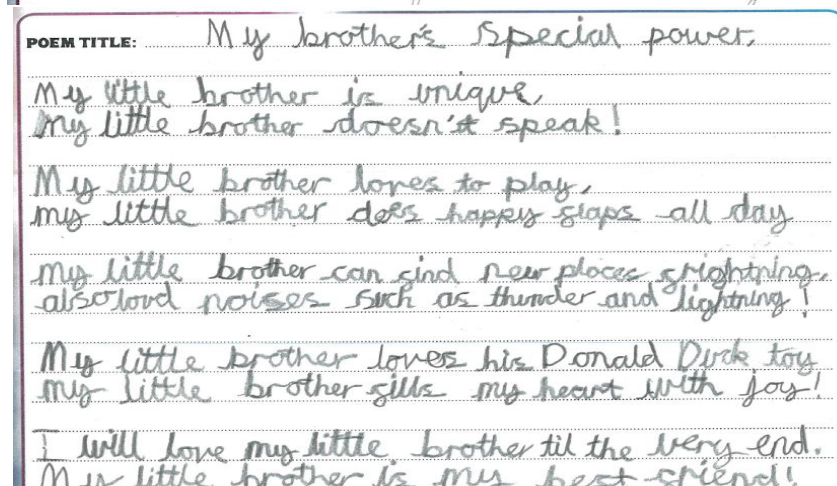 POEM TITLE: My brother's special power.
My little brother is unique,
my little brother doesn't speak!
My little brother loves to play,
my little brother does happy flaps all day
my little brother can find new places frightning,
also loud noises such as thunder and lightning!
My little brother loves his Donald Duck toy
my little brother fills my heart with joy!
I will love my little brother til the very end.
My little brother is my best friend!